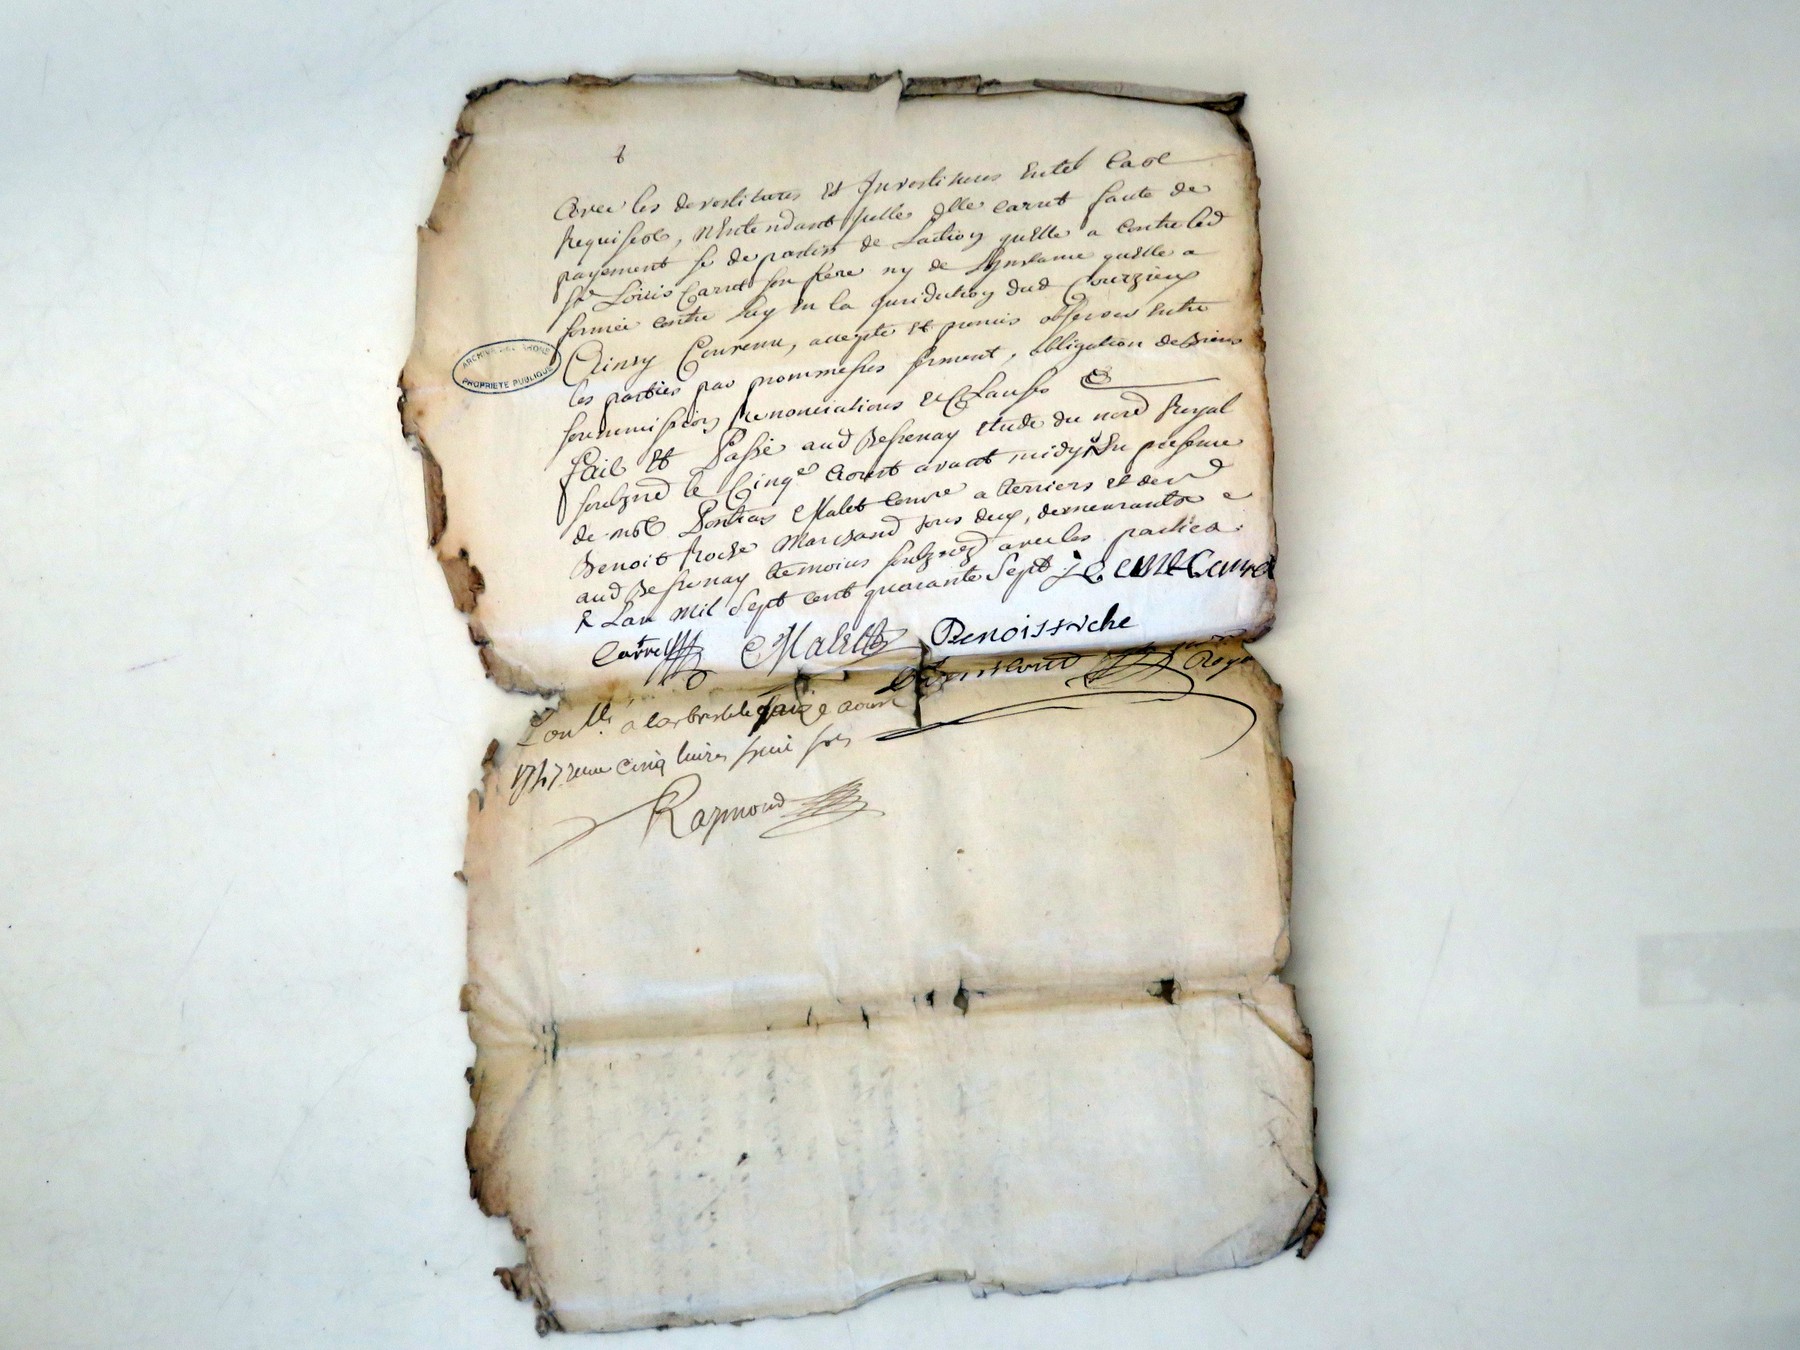 avec les devestitures et Investitures Entel Cas
Requises, N'Entendant Jcelle dlle carret faute de
payement se departir de Laction quelle a Contre led
sr Louis Carret son frere ny de Linstance quelle a
formée contre luy En la juridiction dud Courzieu
Ainsy Convenu, accepté et promis observer Entre
les parties par prommesses serment, obligation de Biens
soummissions Renonciations et Clauses &
fait et Passé aud Bessenay etude du nore Royal
soubzné le Cinqe Aoust avant midy En presence
de mre Pontus Malet Comre a terriers et de sr
Benoit Roche Marchand tous deux, demeurants
aud Bessenay temoins soubznez avec les parties
& Lan mil sept cent quarante sept
Carret Malet Benoist Roche
Royal
ARCHIVES DU RHONE
PROPRIETE PUBLIQUE
Conllé a larbresle le aoust
1747 cinq livres huit sols
Raymond